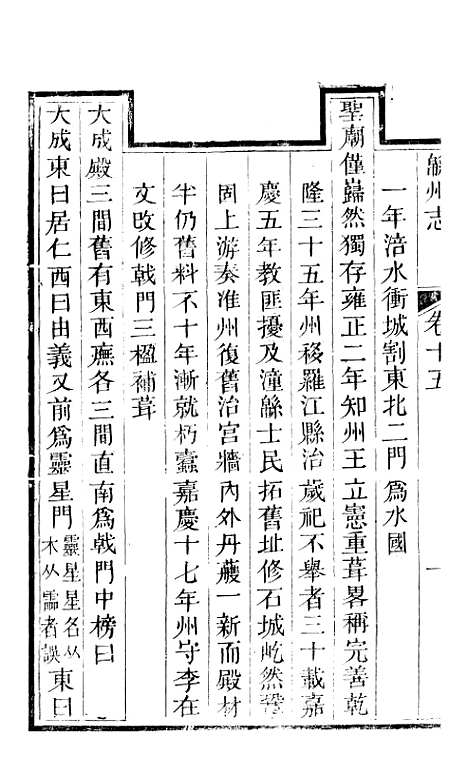 緜州志
卷十五
一
一年涪水衝城割東北二門爲水國
聖廟僅巋然獨存雍正二年知州王立憲重葺畧稱完善乾
隆三十五年州移羅江縣治歲祀不舉者三十載嘉
慶五年教匪擾及潼緜士民拓舊址修石城屹然鞏
固上游奏准州復舊治宮牆內外丹雘一新而殿材
半仍舊料不十年漸就朽蠹嘉慶十七年州守李在
文改修戟門三楹補葺
大成殿三間舊有東西廡各三間直南爲戟門中榜曰
大成東曰居仁西曰由義又前爲靈星門靈星星名从
木从霝者誤東曰